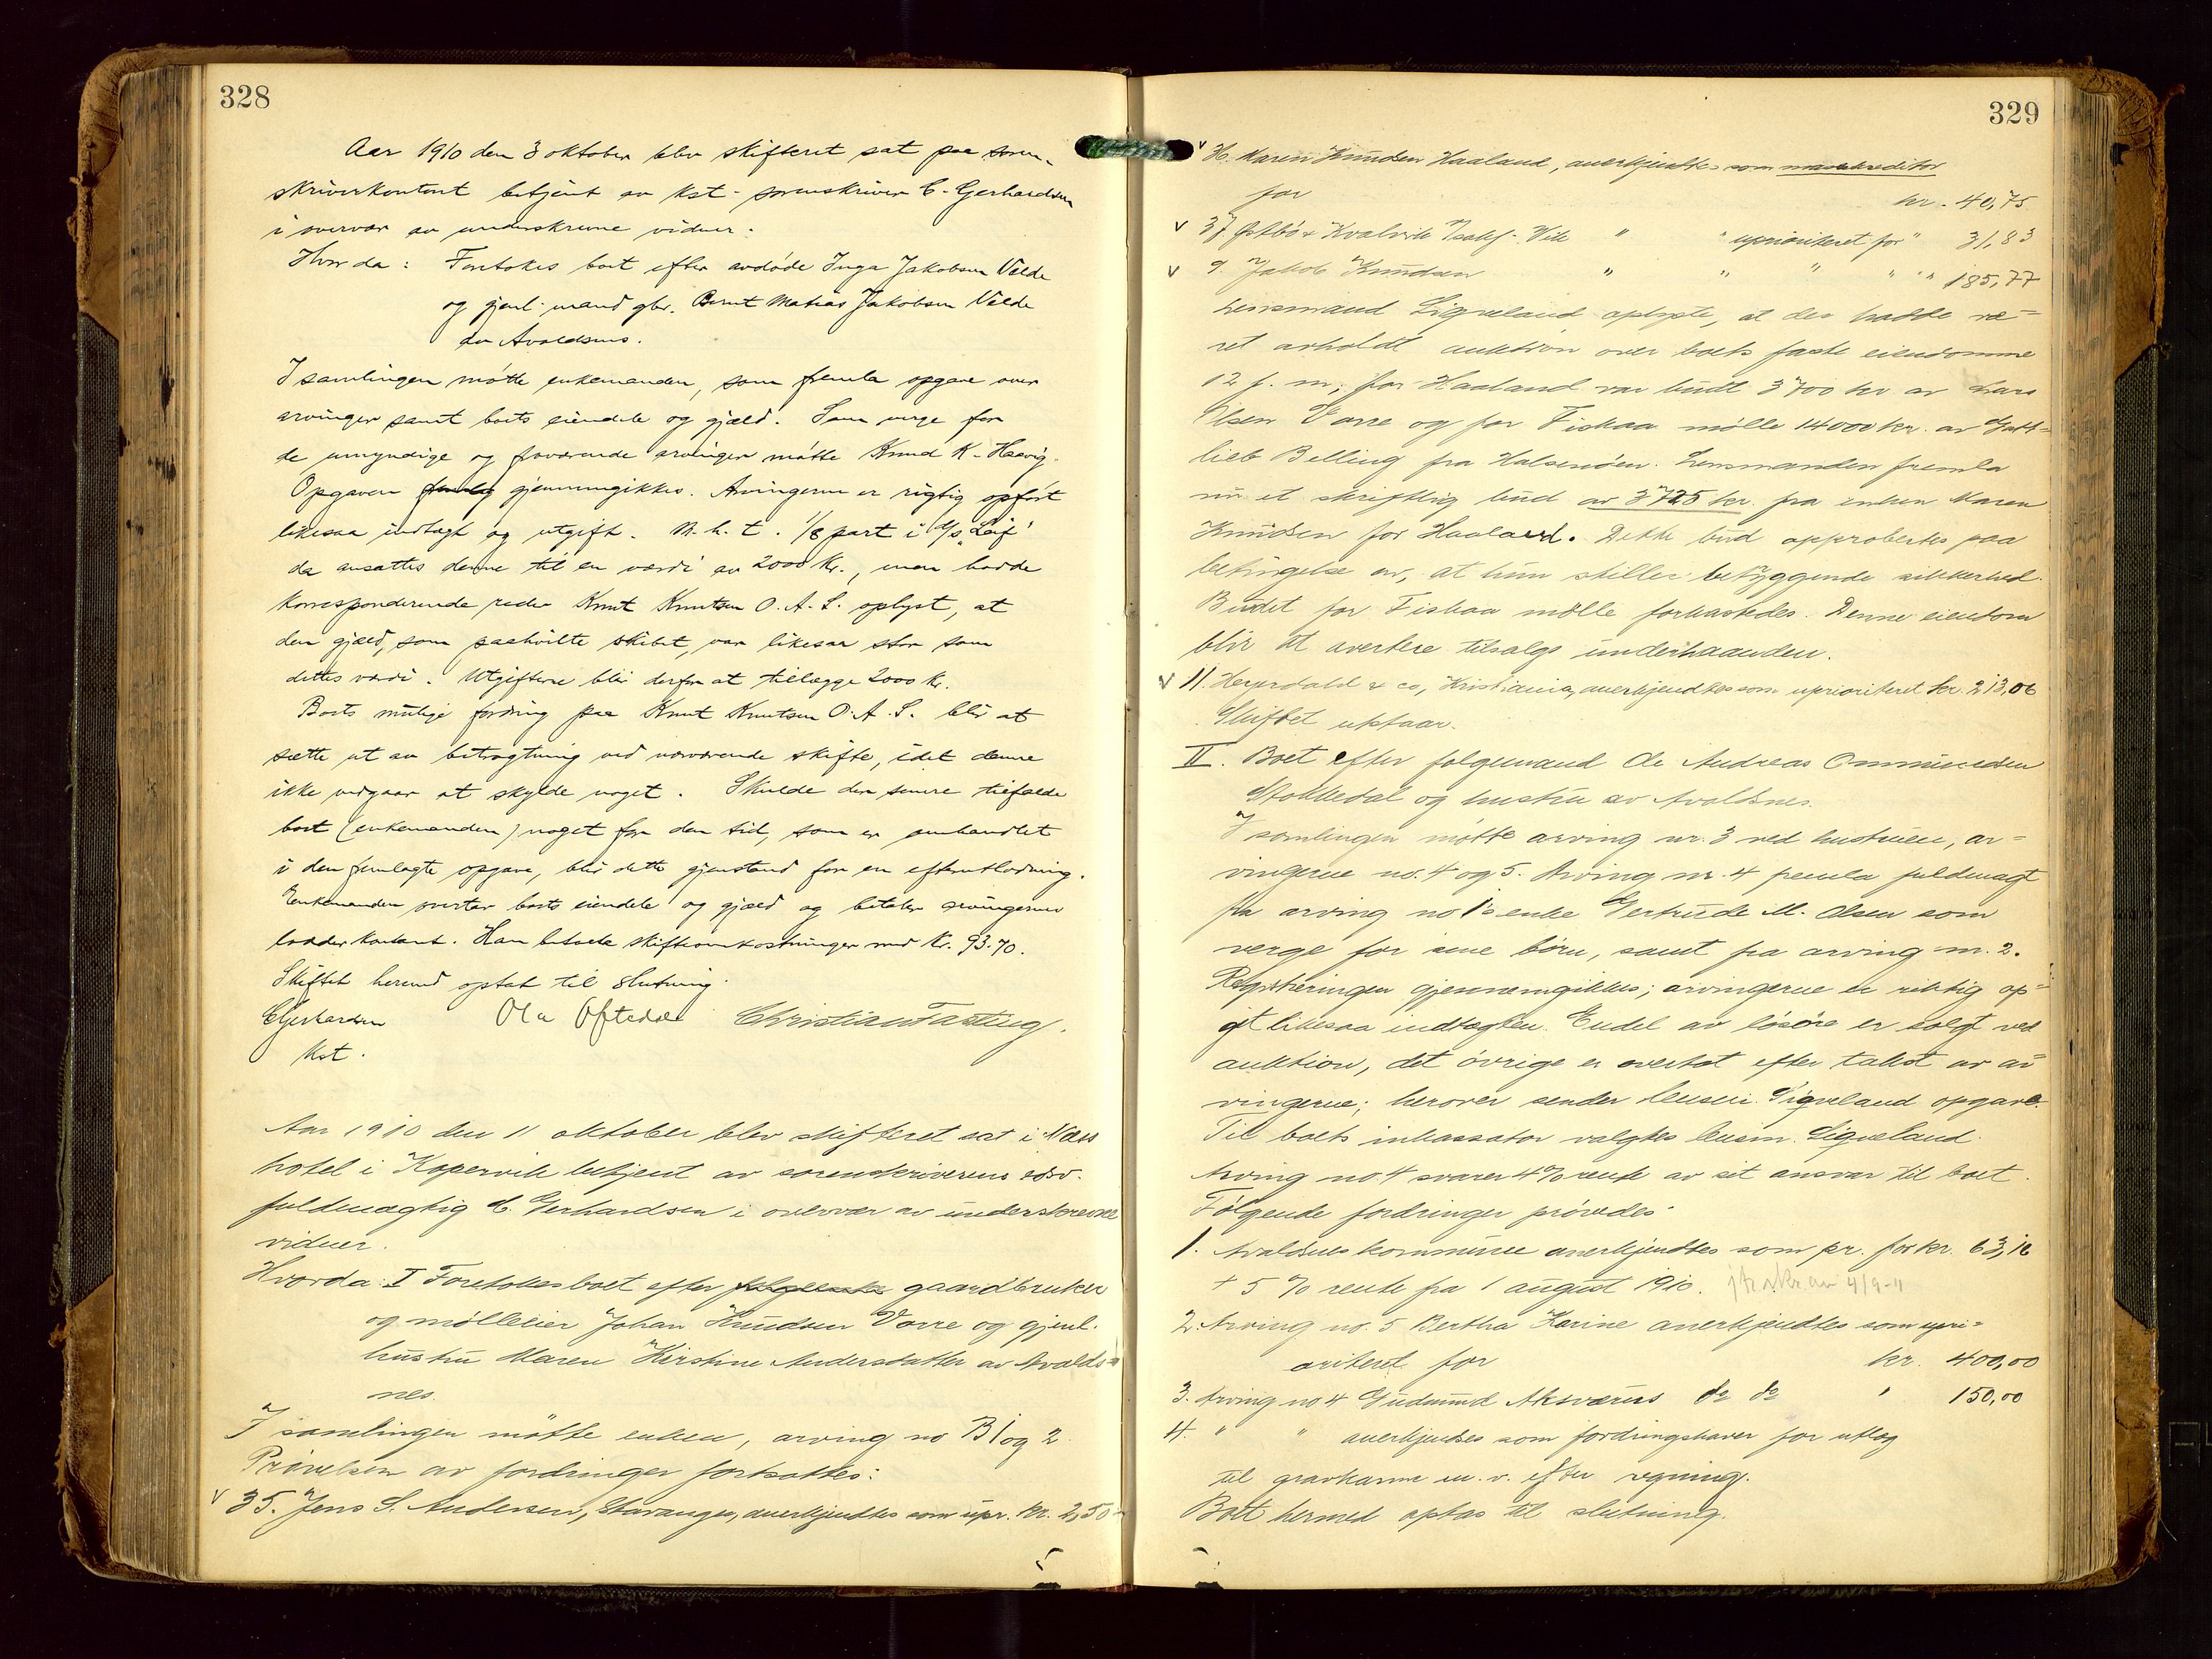 328
Aar 1910 den 3 oktober blev skifteret sat paa soren-
skriverkontoret betjent av kst. sorenskriver C. Gerhardsen
i overvær av underskrevne vidner.
Hvor da: Foretokes boet efter avdøde Inga Jakobsen Velde
og gjenl. mand gbr. Bernt Matias Jakobsen Velde
av Avaldsnes.
I samlingen møtte enkemanden, som fremla opgave over
arvinger samt boets eiendele og gjæld. Som verge for
de umyndige og fraværende arvinger møtte Knud K. Hervig.
Opgaven gjennemgikkes. Arvingerne er rigtig opført
likesaa indtægt og utgift. M.h.t. 1/8 part i D/S "Leif"
da ansattes denne til en værdi av 2000 Kr., men hadde
korresponderende reder Knut Knutsen O.A.S. oplyst, at
den gjæld, som paahvilte skibet, var likesaa stor som
dettes værdi. Utgifterne blir derfor at tillægge 2000 Kr.
Boets mulige fordring paa Knut Knutsen O.A.S. blir at
sætte ut av betragtning ved nærværende skifte, idet denne
ikke vedgaar at skylde noget. Skulde der senere tilfalde
boet (enkemanden) noget for den tid, som er omhandlet
i den fremlagte opgave, blir dette gjenstand for en efterutlodning.
Enkemanden overtar boets eiendele og gjæld og betaler arvingernes
lodder kontant. Han betalte skifteomkostninger med Kr. 93.70.
Skiftet hermed optat til slutning.
C Gerhardsen Ola Oftedal Christian Fasting.
kst.
Aar 1910 den 11 oktober blev skifteret sat i Næs
hotel i Kopervik betjent av sorenskriverens edsv.
fuldmægtig C. Gerhardsen i overvær av underskrevne
vidner.
Hvorda: I Foretokes boet efter gaardbruker
og mølleeier Johan Knudsen Vorre og gjenl.
hustru Maren Kirstine Andersdatter av Avalds-
nes.
I samlingen møtte enken, arving no B 1 og 2.
Prøvelsen av fordringer fortsattes:
v 35. Jens S. Andersen, Stavanger, anerkjendtes som upr. kr. 2,50
329
v Maren Knudsen Haaland, anerkjendtes som massekreditor
for kr. 40,75
v 37 Østbø & Kvalvik Vik " " uprioriteret for " 31,83
v 9. Jakob Knudsen " " " " " " 185,77
Lensmand Ligveland oplyste, at der hadde væ-
ret avholdt auktion over boets faste eiendomme
12 f. m.; for Haaland var budt 3700 kr. av Lars
Olsen Vorre og for Fiskaa mølle 14000 kr. av Gott-
lieb Belling fra Halsenøen. Lensmanden fremla
nu et skriftlig bud av 3725 kr. fra enken Maren
Knudsen for Haaland. Dette bud approbertes paa
betingelse av, at hun stiller betryggende sikkerhed.
Budet for Fiskaa mølle forkastedes. Denne eiendom
blir at avertere tilsalgs underhaanden.
v 11. Heyerdahl & co, Kristiania, anerkjendtes som uprioriteret kr. 213,06
Skiftet utstaar.
II. Boet efter følgemand Ole Andreas Ommundsen
Stokkedal og hustru av Avaldsnes.
I samlingen møtte arving nr. 3 ved hustruen, ar-
vingerne no. 4 og 5. Arving nr. 4 fremla fuldmagt
fra arving no 1's enke Gertrude M. Olsen som
verge for sine børn, samt fra arving nr. 2.
Registreringen gjennemgikkes; arvingerne er riktig op-
git likesaa indtægten. Endel av løsøre er solgt ved
auktion, det øvrige er overtat efter takst av ar-
vingerne; herover sender lensm. Ligveland opgave.
Til boets inkassator valgtes lensm. Ligveland.
Arving no. 4 svarer 4% rente av sit ansvar til boet.
Følgende fordringer prøvedes:
1. Avaldsnes kommune anerkjendtes som pr. for kr. 63,16
+ 5 % rente fra 1 august 1910. 4/9-11
2. Arving no. 5 Bertha Karine anerkjendtes som upri-
oriteret for kr. 400,00
3. Arving no 4 Gudmund do do " 150,00
4. " " anerkjendtes som fordringshaver for utlæg
til gravkarme m. v. efter regning.
Boet hermed optas til slutning.